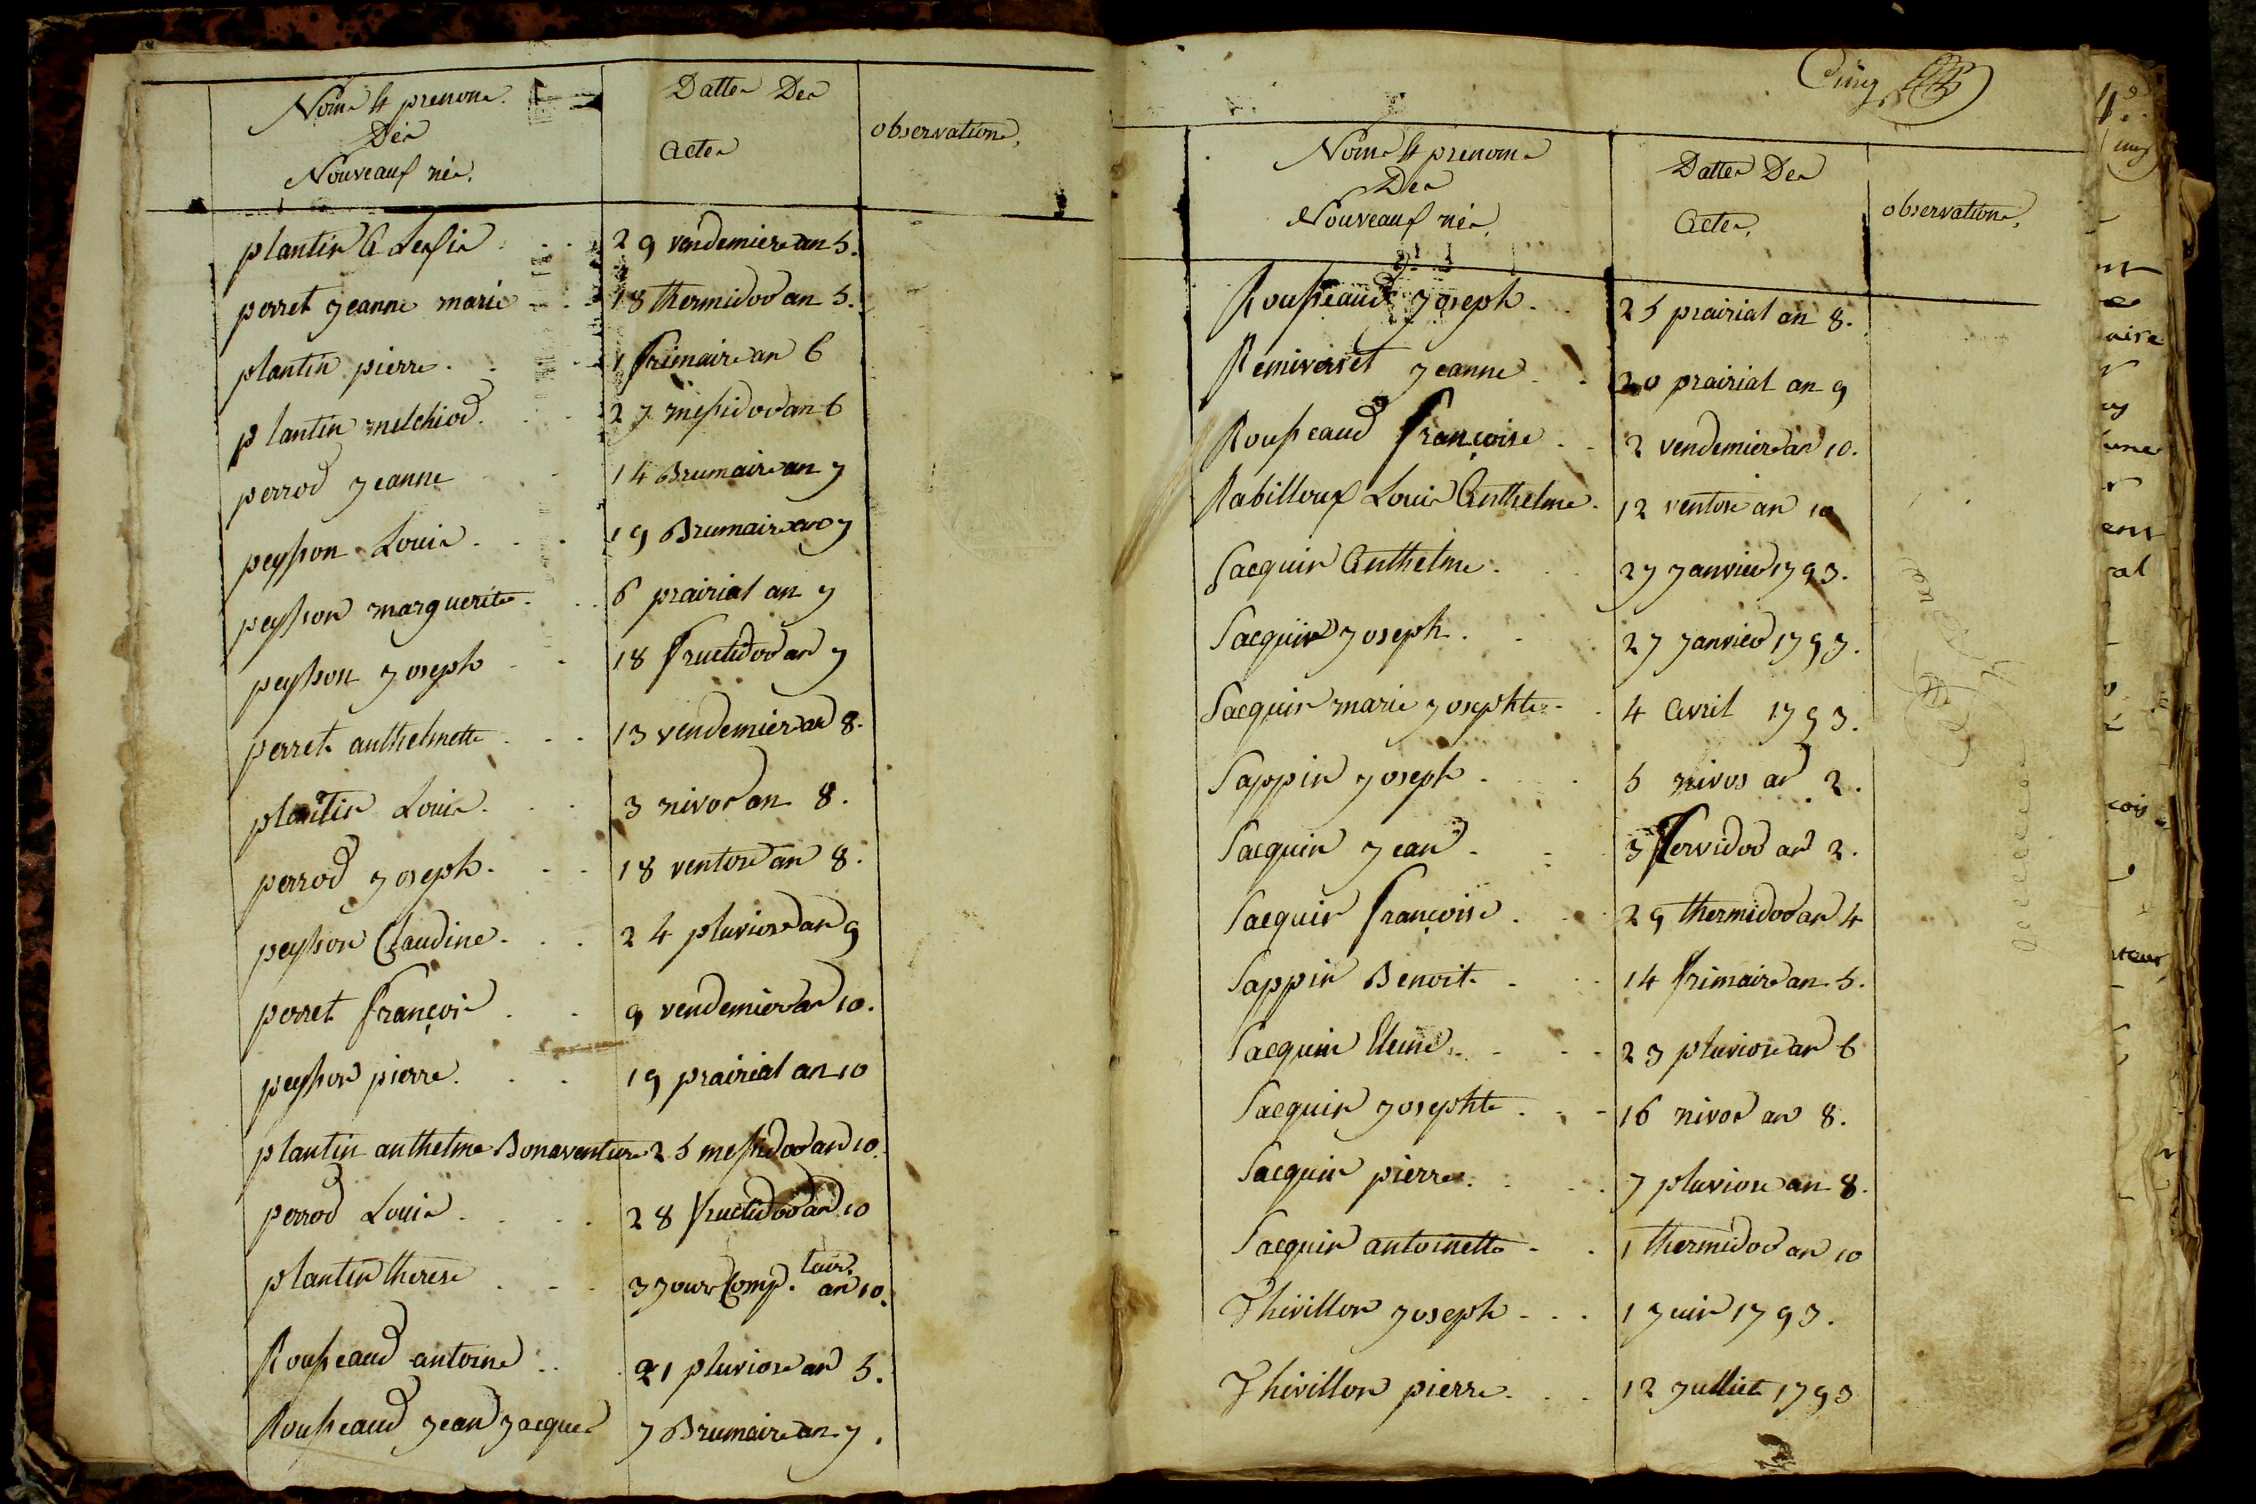 Noms & prenoms
Des
Nouveaux nés.
Dattes Des
Actes
observations,
plantin Alexis 29 vendemiere an 5.
perret jeanne marie 18 thermidor an 5.
plantin pierre. 1 frimaire an 6
plantin melchior. 27 messidor an 6
perrod jeanne 14 Brumaire an 7
peysson Louis. 19 Brumaire an 7
peysson marguerite. 6 prairial an 7
peysson joseph 18 fructidor an 7
perret anthelmette 13 vendemiere an 8.
plantin Louis. 3 nivos an 8.
perrod joseph. 18 ventose an 8.
peysson Claudine. 24 pluviose an 9
perret françois 9 vendemiere an 10.
peysson pierre. 19 prairial an 10
plantin anthelme Bonaventure 25 messidor an 10.
perrod Louis. 28 fructidor an 10
plantin therese 3 jours Comp.taire an 10.
Rousseaud antoine 21 pluviose an 5.
Rousseaud jean jacques 7 Brumaire an 7.
Cinq
Noms & prenoms
Des
Nouveaux nés.
Dattes Des
Actes,
observations,
Rousseaud joseph. 25 prairial an 8.
Remiverset jeanne 20 prairial an 9
Rousseaud françoise 2 vendemiere an 10.
Rabilloux Louis Anthelme. 12 ventose an 10
Sacquin Anthelme. 27 janvier 1793.
Sacquin joseph. 27 janvier 1793.
Sacquin marie josephte 4 Avril 1793.
Sappin joseph. 5 nivos an 2.
Sacquin jean. 3 fervidor an 2.
Sacquin françoise. 29 thermidor an 4
Sappin Benoit. 14 frimaire an 5.
Sacquin 23 pluviose an 6
Sacquin josephte. 16 nivos an 8.
Sacquin pierre. 7 pluviose an 8.
Sacquin antoinette 1 thermidor an 10
Thivillon joseph 1 juin 1793.
Thivillon pierre. 12 julliet 1793